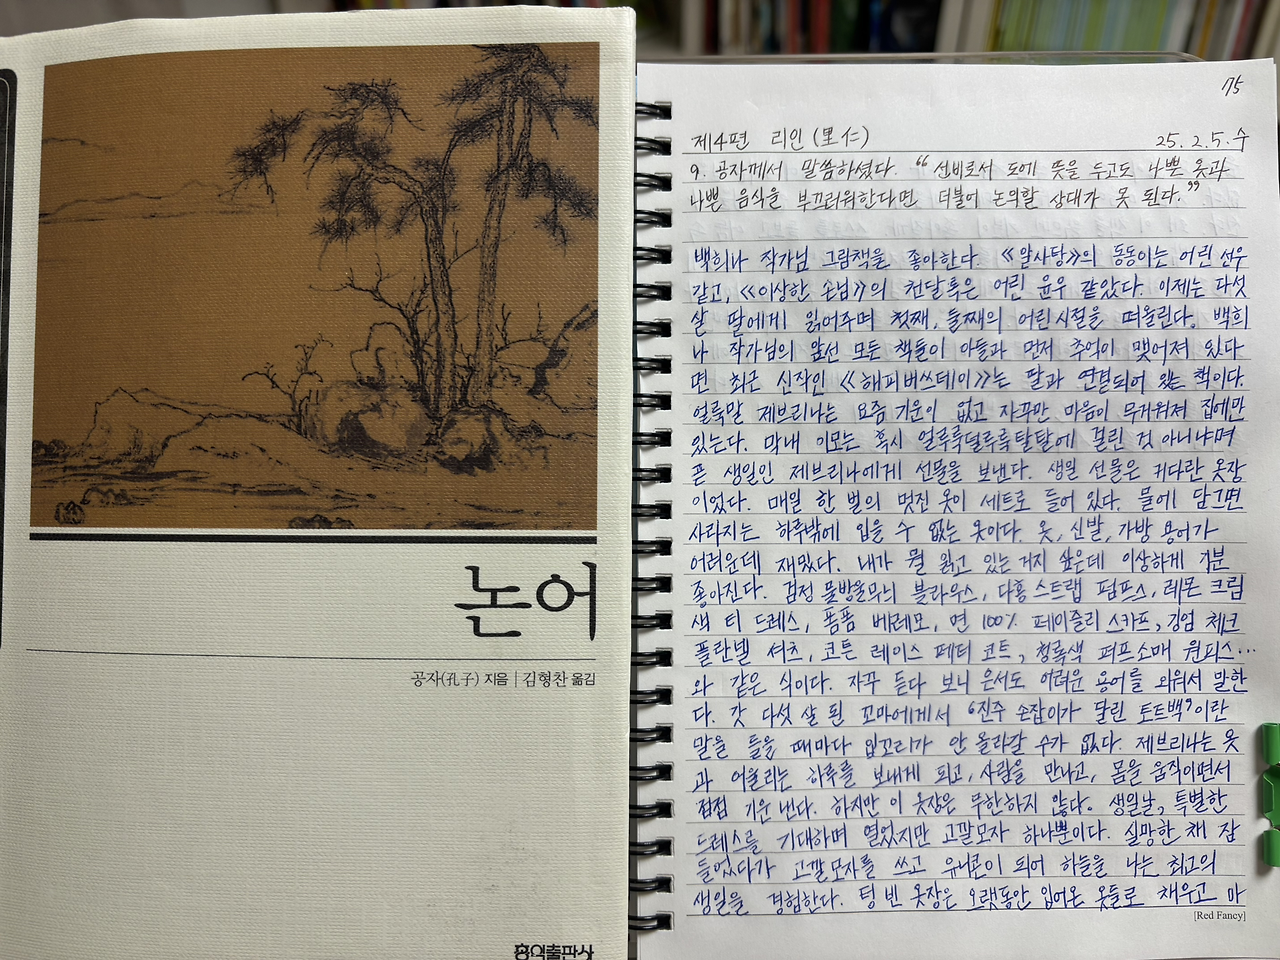 논어
공자(孔子) 지음 | 김형찬 옮김
홍익출판사
75
제4편 리인(里仁) 25.2.5.수
9. 공자께서 말씀하셨다. "선비로서 도에 뜻을 두고도 나쁜 옷과
나쁜 음식을 부끄러워한다면 더불어 논의할 상대가 못 된다."
백희나 작가님 그림책을 좋아한다. 《알사탕》의 동동이는 어린 선우
같고, 《이상한 손님》의 천달록은 어린 윤우 같았다. 이제는 다섯
살 딸에게 읽어주며 첫째, 둘째의 어린시절을 떠올린다. 백희
나 작가님의 앞선 모든 책들이 아들과 먼저 추억이 맺어져 있다
면 최근 신작인 《해피버쓰데이》는 딸과 연결되어 있는 책이다.
얼룩말 제브리나는 요즘 기운이 없고 자꾸만 마음이 무거워져 집에만
있는다. 막내 이모는 혹시 얼루루덜루룩탈탈에 걸린 것 아니냐며
곧 생일인 제브리나에게 선물을 보낸다. 생일 선물은 커다란 옷장
이었다. 매일 한 벌의 멋진 옷이 세트로 들어 있다. 물에 담그면
사라지는 하루밖에 입을 수 없는 옷이다. 옷, 신발, 가방 용어가
어려운데 재밌다. 내가 뭘 읽고 있는 거지 싶은데 이상하게 기분
좋아진다. 검정 물방울무늬 블라우스, 다홍 스트랩 펌프스, 레몬 크림
색 티 드레스, 퐁퐁 베레모, 면 100% 페이즐리 스카프, 깅엄 체크
플란넬 셔츠, 코튼 레이스 페티 코트, 청록색 퍼프소매 원피스…
와 같은 식이다. 자꾸 듣다 보니 은서도 어려운 용어를 외워서 말한
다. 갓 다섯 살 된 꼬마에게서 '진주 손잡이가 달린 토트백'이란
말을 들을 때마다 입꼬리가 안 올라갈 수가 없다. 제브리나는 옷
과 어울리는 하루를 보내게 되고, 사람을 만나고, 몸을 움직이면서
점점 기운 낸다. 하지만 이 옷장은 무한하지 않다. 생일날, 특별한
드레스를 기대하며 열었지만 고깔모자 하나뿐이다. 실망한 채 잠
들었다가 고깔모자를 쓰고 유니콘이 되어 하늘을 나는 최고의
생일을 경험한다. 텅 빈 옷장은 오랫동안 입어온 옷들로 채우고 마
[Red Fancy]